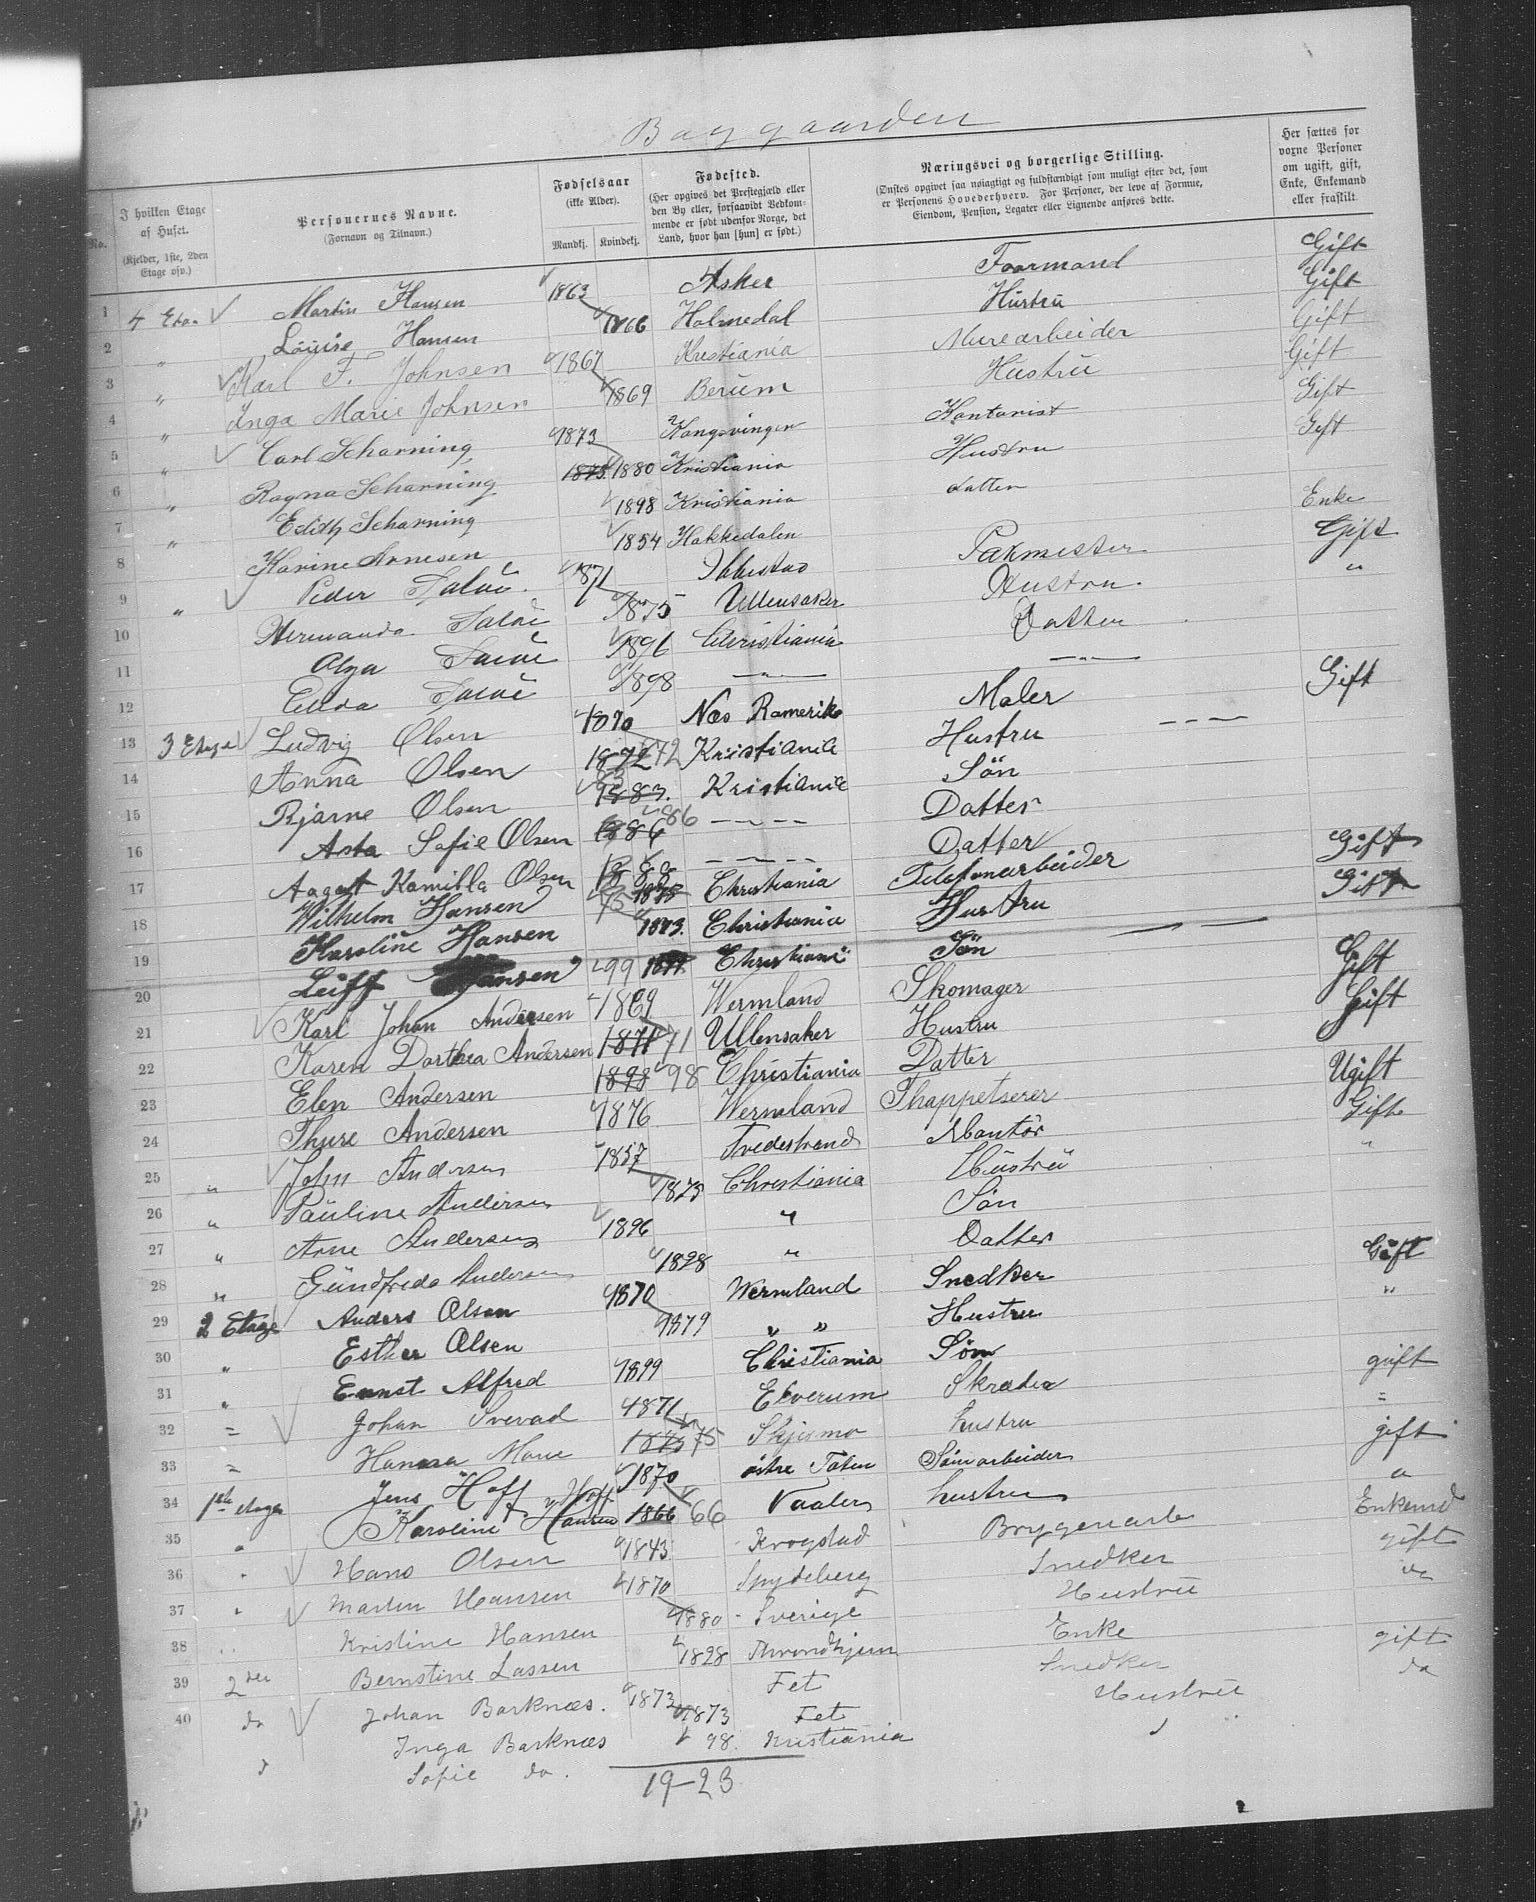 Baggaarden
No. | I hvilken Etage af Huset. (Kjelder, 1ste, 2den Etage osv.) | Personernes Navne. (Fornavn og Tilnavn.) | Fødselsaar (ikke Alder). Mandkj. Kvindekj. | Fødested. (Her opgives det Prestegjæld eller den By eller, forsaavidt Vedkommende er født udenfor Norge, det Land, hvor han [hun] er født.) | Næringsvei og borgerlige Stilling. (Ønskes opgivet saa nøiagtigt og fuldstændigt som muligt efter det, som er Personens Hovederhverv. For Personer, der leve af Formue, Eiendom, Pension, Legater eller Lignende anføres dette.) | Her sættes for voxne Personer om ugift, gift, Enke, Enkemand eller fraskilt.
1 4 Eta. Martin Hansen 1863 Asker Foormand Gift
2 " Louise Hansen 1866 Holmedal Hustru Gift
3 " Karl F. Johnsen 1867 Kristiania Murearbeider Gift
4 " Inga Marie Johnsen 1869 Berum Hustru Gift
5 " Carl Scharning 1873 Kongsvinger Kontorist Gift
6 " Ragna Scharning 1880 Kristiania Hustru Gift
7 " Edith Scharning 1898 Kristiania datter
8 Karine Arnesen 1854 Hakkedalen Enke
9 " Peder 1871 Ibbestad Pakmester Gift
10 Hermanda 1875 Ullensaker Hustru "
11 Olga 1896 Christiania Datter
12 1898 —"— —"—
13 3 Etage Ludvig Olsen 1870 Næs Romerike Maler Gift
14 Anna Olsen 1872 72 Kristiania Hustru - - -
15 Bjarne Olsen 1883. 83 Kristiania Sön
16 Asta Sofie Olsen 1886 86 - - - - Datter
17 Aagot Kamilla Olsen 88 - - - - Datter
18 Wilhelm Hansen 1875 75 Christiania Telefonarbeider Gift
19 Karoline Hansen 1873. Christiania Hustru Gift
20 Leiff Hansen 99 Christiania Sön
21 Karl Johan Andersen 1869 Wermland Skomager Gift
22 Karen Dorthea Andersen 1871 71 Ullensaker Hustru Gift
23 Elen Andersen 1898 98 Christiania Datter
24 Thure Andersen 1876 Wermland Thappetserer Ugift
25 " John Andersen 1857 Tvedestrand Montör Gift
26 " Pauline Andersen 1875 Christiania Hustru "
27 " Arne Andersen 1896 " Sön
28 " Gundfreda Andersen 1898 " Datter
29 2 Etage Anders Olsen 1870 Wermland Snedker Gift
30 " Esther Olsen 1879 " " Hustru "
31 " Ernst Alfred 1899 Christiania Søn
32 = Johan Svevad 1871 Elverum Skræder gift
33 = Hanna Marie 1875 75 Skjesmo hustru =
34 1ste etage Jens Hoff 1870 østre Toten Sömarbeider gift
35 " Karoline Hansen Hoff 1866 66 Vaaler hustru "
36 " Hans Olsen 1843 Krogstad Bryggearb Enkemd
37 " Martin Hansen 1870 Spydeberg Snedker gift
38 " Kristine Hansen 1880 - Sverige Hustru do
39 2den Bernstine Lassen 1828 Throndhjem Enke
40 do Johan Barknæs. 1873 Fet Snedker gift
Inga Barknæs 1873 Fet Hustru do
Sofie do. 98. Kristiania
19-23